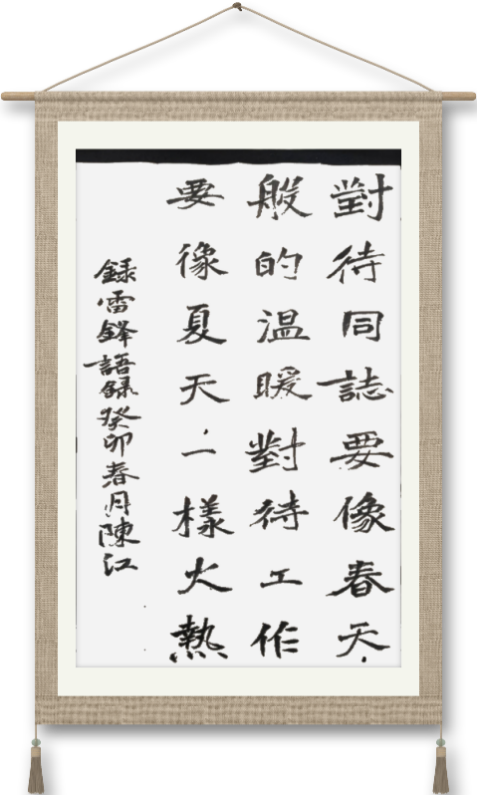 對待同誌要像春天
般的温暖對待工作
要像夏天一樣火熱
録雷鋒語録癸卯春月陳江